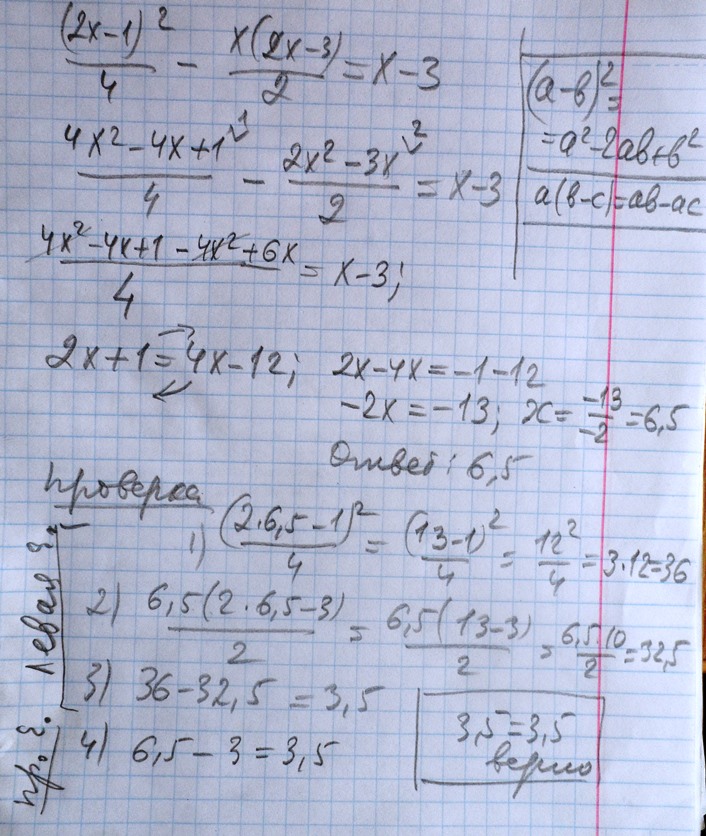 (2x-1)²/4 - x(2x-3)/2 = x-3
(a-b)²=
=a²-2ab+b²
a(b-c)=ab-ac
4x²-4x+1/4 - 2x²-3x/2 = x-3
1 2
4x²-4x+1-4x²+6x/4 = x-3;
2x+1=4x-12; 2x-4x=-1-12
-2x=-13; x=-13/-2=6,5
Ответ: 6,5
Проверка
Левая ч.
1) (2·6,5-1)²/4 = (13-1)²/4 = 12²/4 = 3·12=36
2) 6,5(2·6,5-3)/2 = 6,5(13-3)/2 = 6,5·10/2=32,5
3) 36-32,5=3,5
пр. ч.
4) 6,5-3=3,5
3,5=3,5
верно